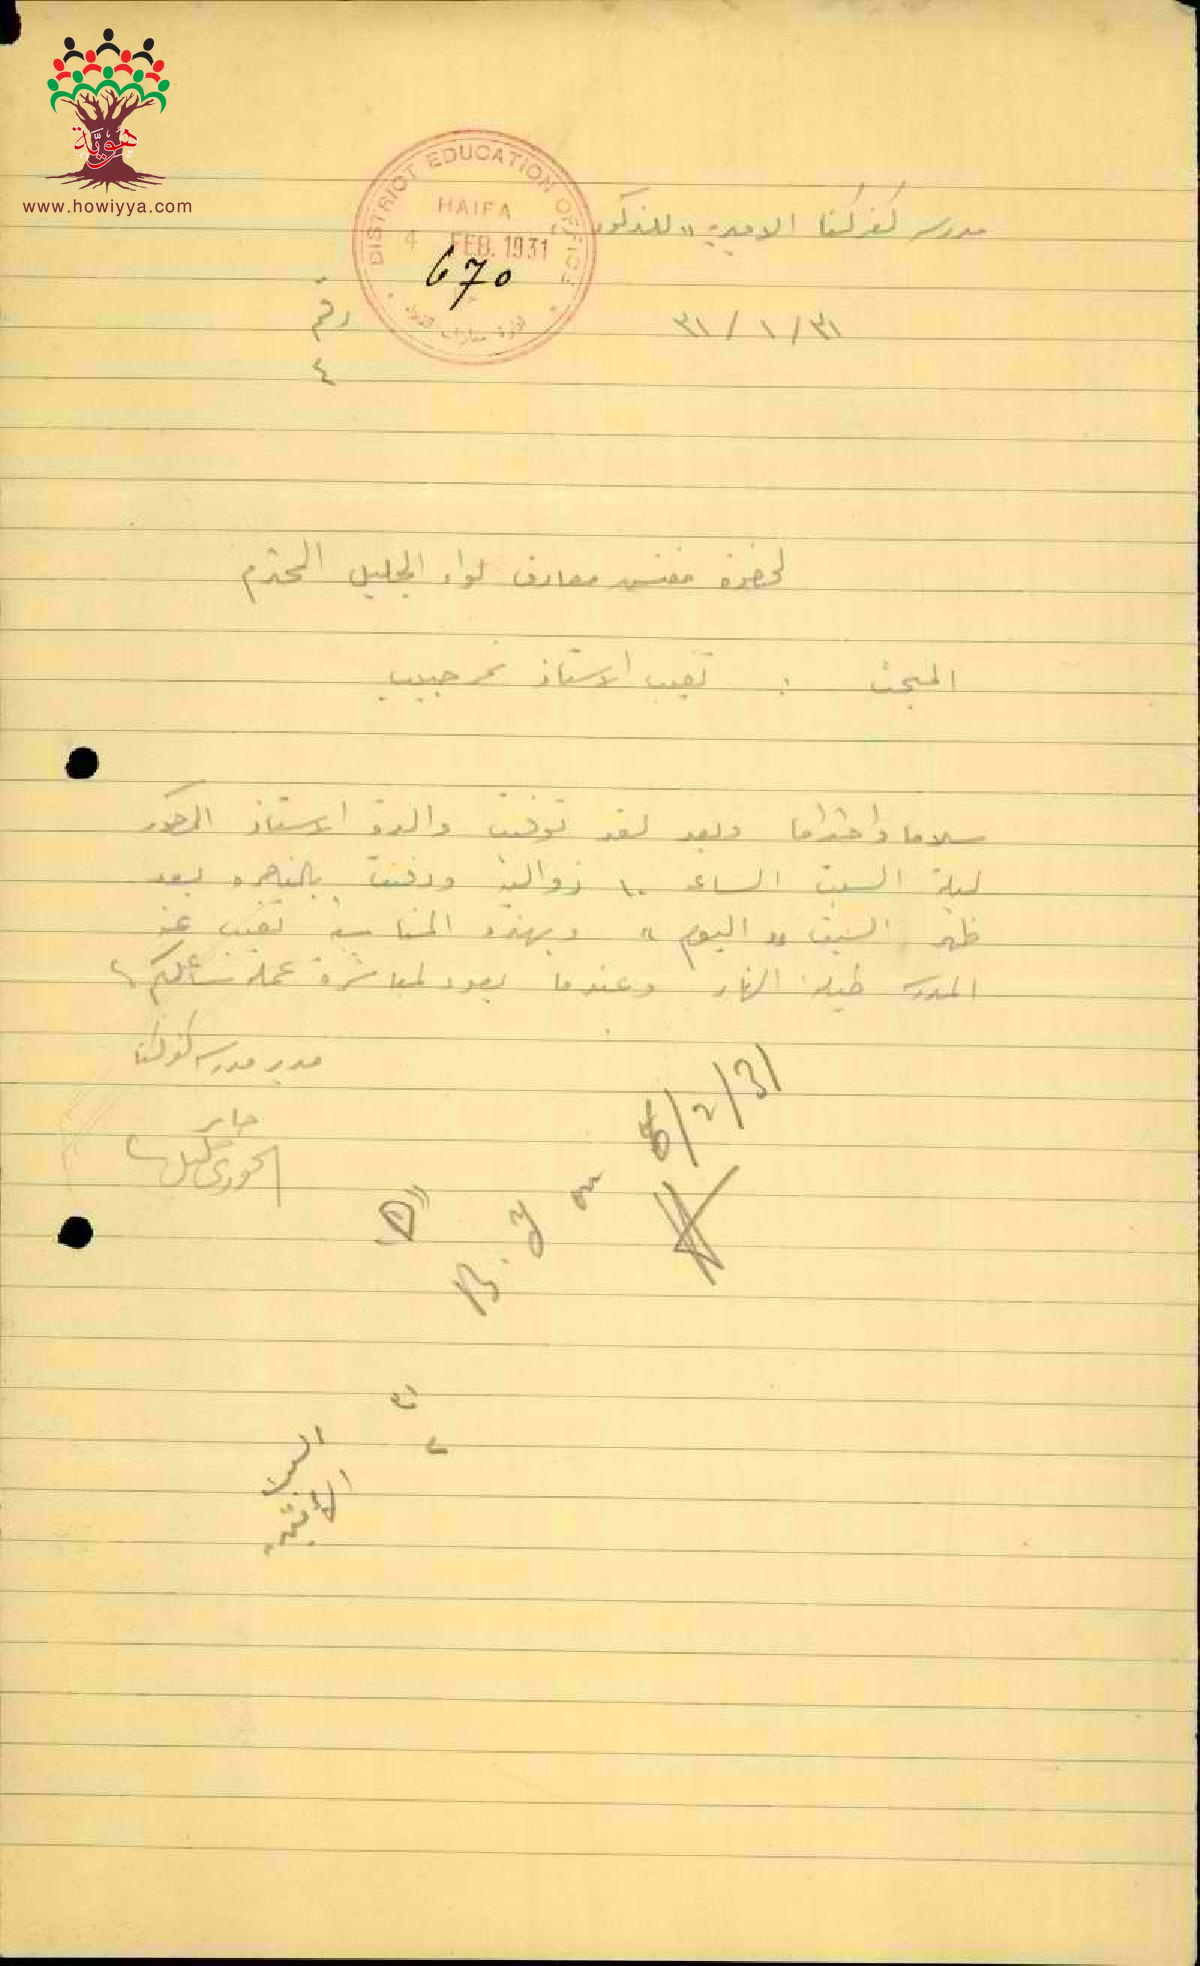 هويّة
www.howiyya.com
DISTRICT EDUCATION OFFICE
HAIFA
4 FEB. 1931
670
مدرسة كفركنا الاميرية "للذكور"
٣١ / ١ / ٣١
رقم
٤
لحضرة مفتش معارف لواء الجليل المحترم
المبحث : تغيب الاستاذ نمر حبيب
سلاما واحتراما وبعد لقد توفيت والدة الاستاذ المذكور
ليلة السبت الساعة ١٠ زوالية ودفنت بالناصره بعد
ظهر السبت "اليوم" وبهذه المناسبة تغيب عن
المدرسة طيلة النهار وعندما يعود لمباشرة عمله سأعلمكم
مدير مدرسة كفركنا
جابر
الخوري
B. Y on 6/2/31